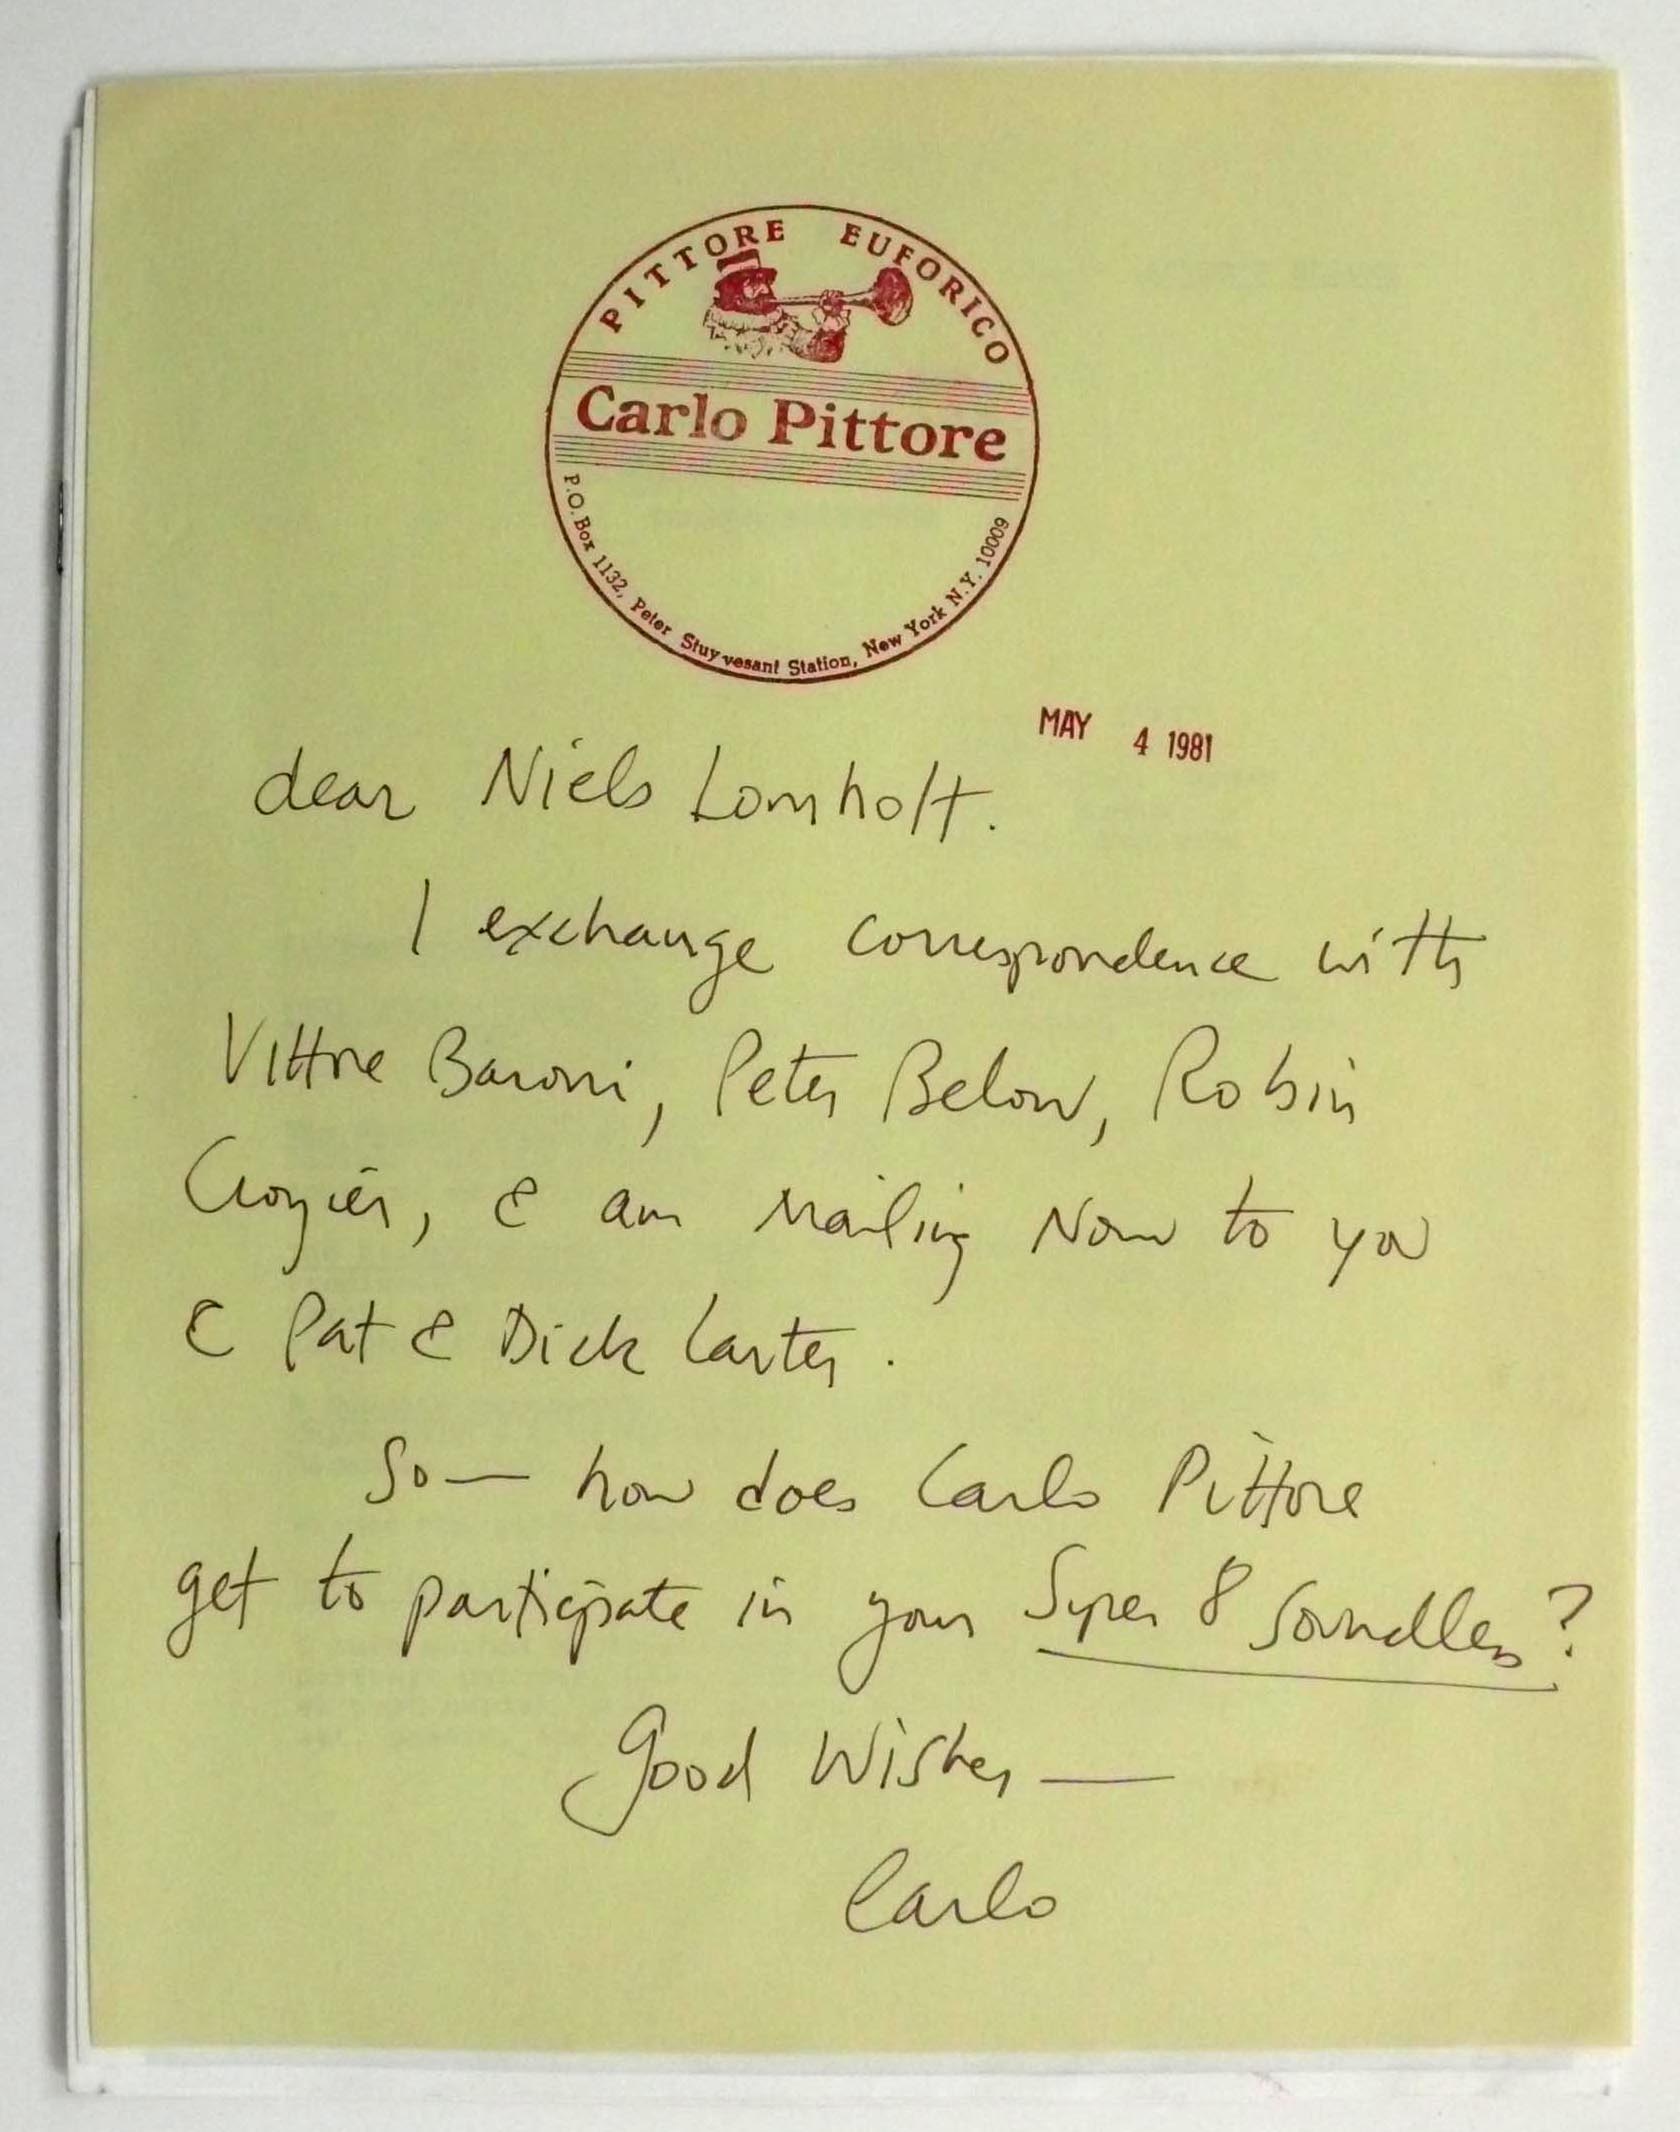 PITTORE EUFORICO
Carlo Pittore
P.O. Box 1132, Peter Stuyvesant Station, New York N.Y. 10009
MAY 4 1981
dear Niels Lomholt.
I exchange correspondence with
Vittore Baroni, Peter Below, Robin
Crozier, & am mailing now to you
& Pat & Dick Larter.
So — how does Carlo Pittore
get to participate in your Super 8 Soundless?
Good Wishes —
Carlo